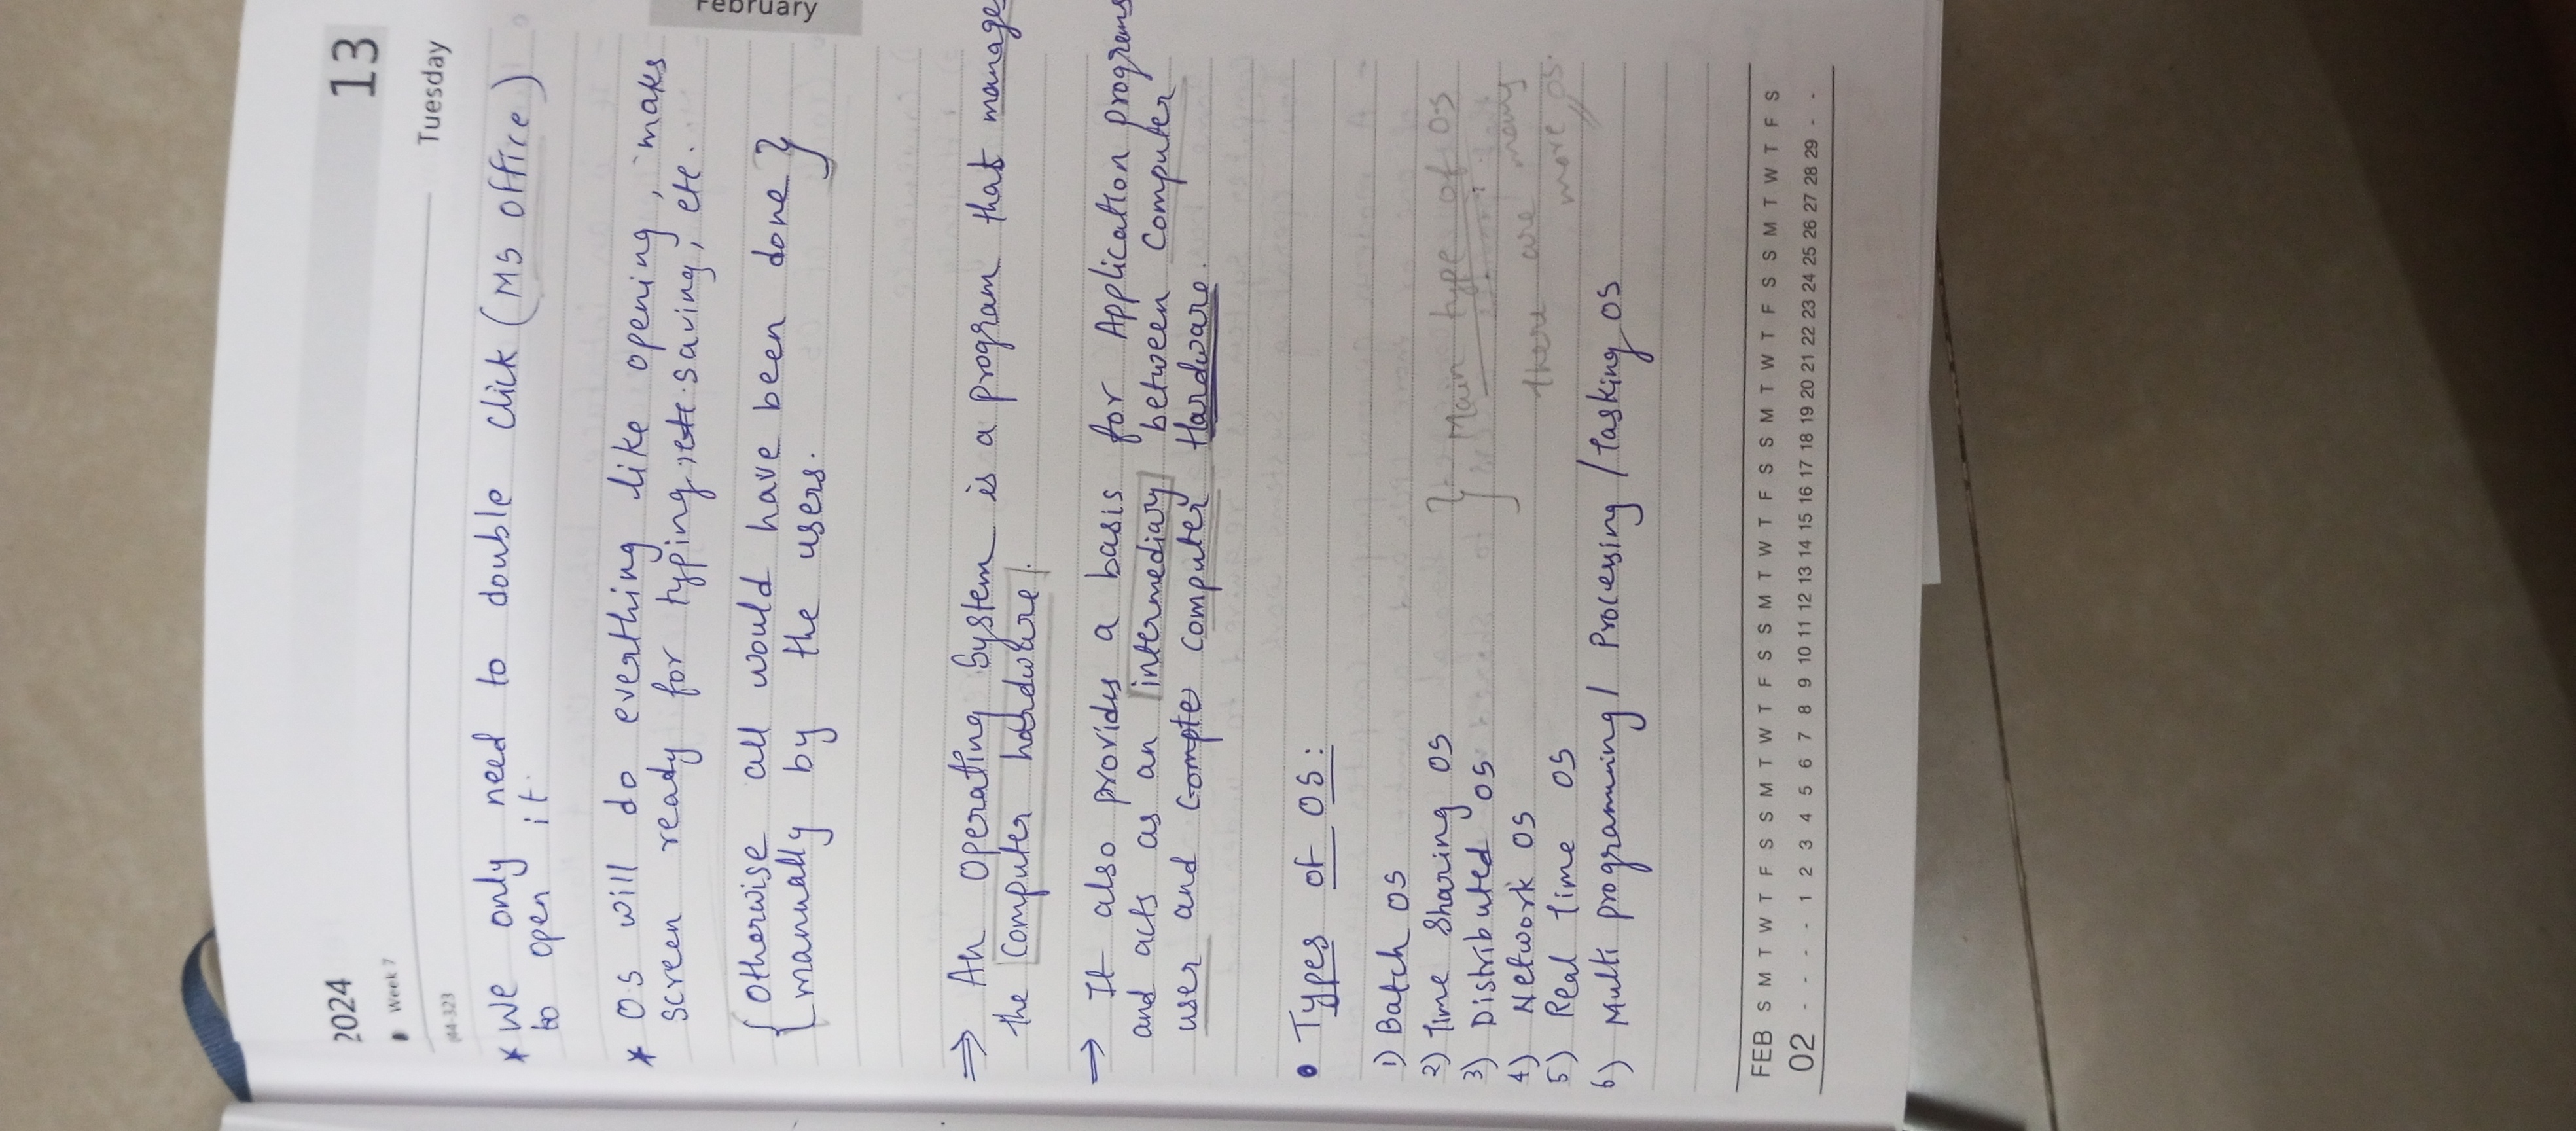 February
2024
13
Week 7
Tuesday
44-323
* We only need to double click (MS Office)
to open it.
* O.S will do everthing like opening, maks
screen ready for typing, etc. saving, etc.
{ Otherwise all would have been done }
manually by the users.
⇒ An Operating System is a program that manages
the Computer hardware.
→ It also provides a basis for Application programs
and acts as an intermediary between Computer
user and compter computer Hardware.
• Types of OS:
1) Batch OS
2) Time Sharing OS } Main type of OS
3) Distributed OS
4) Network OS there are many
5) Real Time OS more OS.
6) Multi programming / Processing / Tasking OS
FEB S M T W T F S S M T W T F S S M T W T F S S M T W T F S S M T W T F S
02 - - - - 1 2 3 4 5 6 7 8 9 10 11 12 13 14 15 16 17 18 19 20 21 22 23 24 25 26 27 28 29 - -